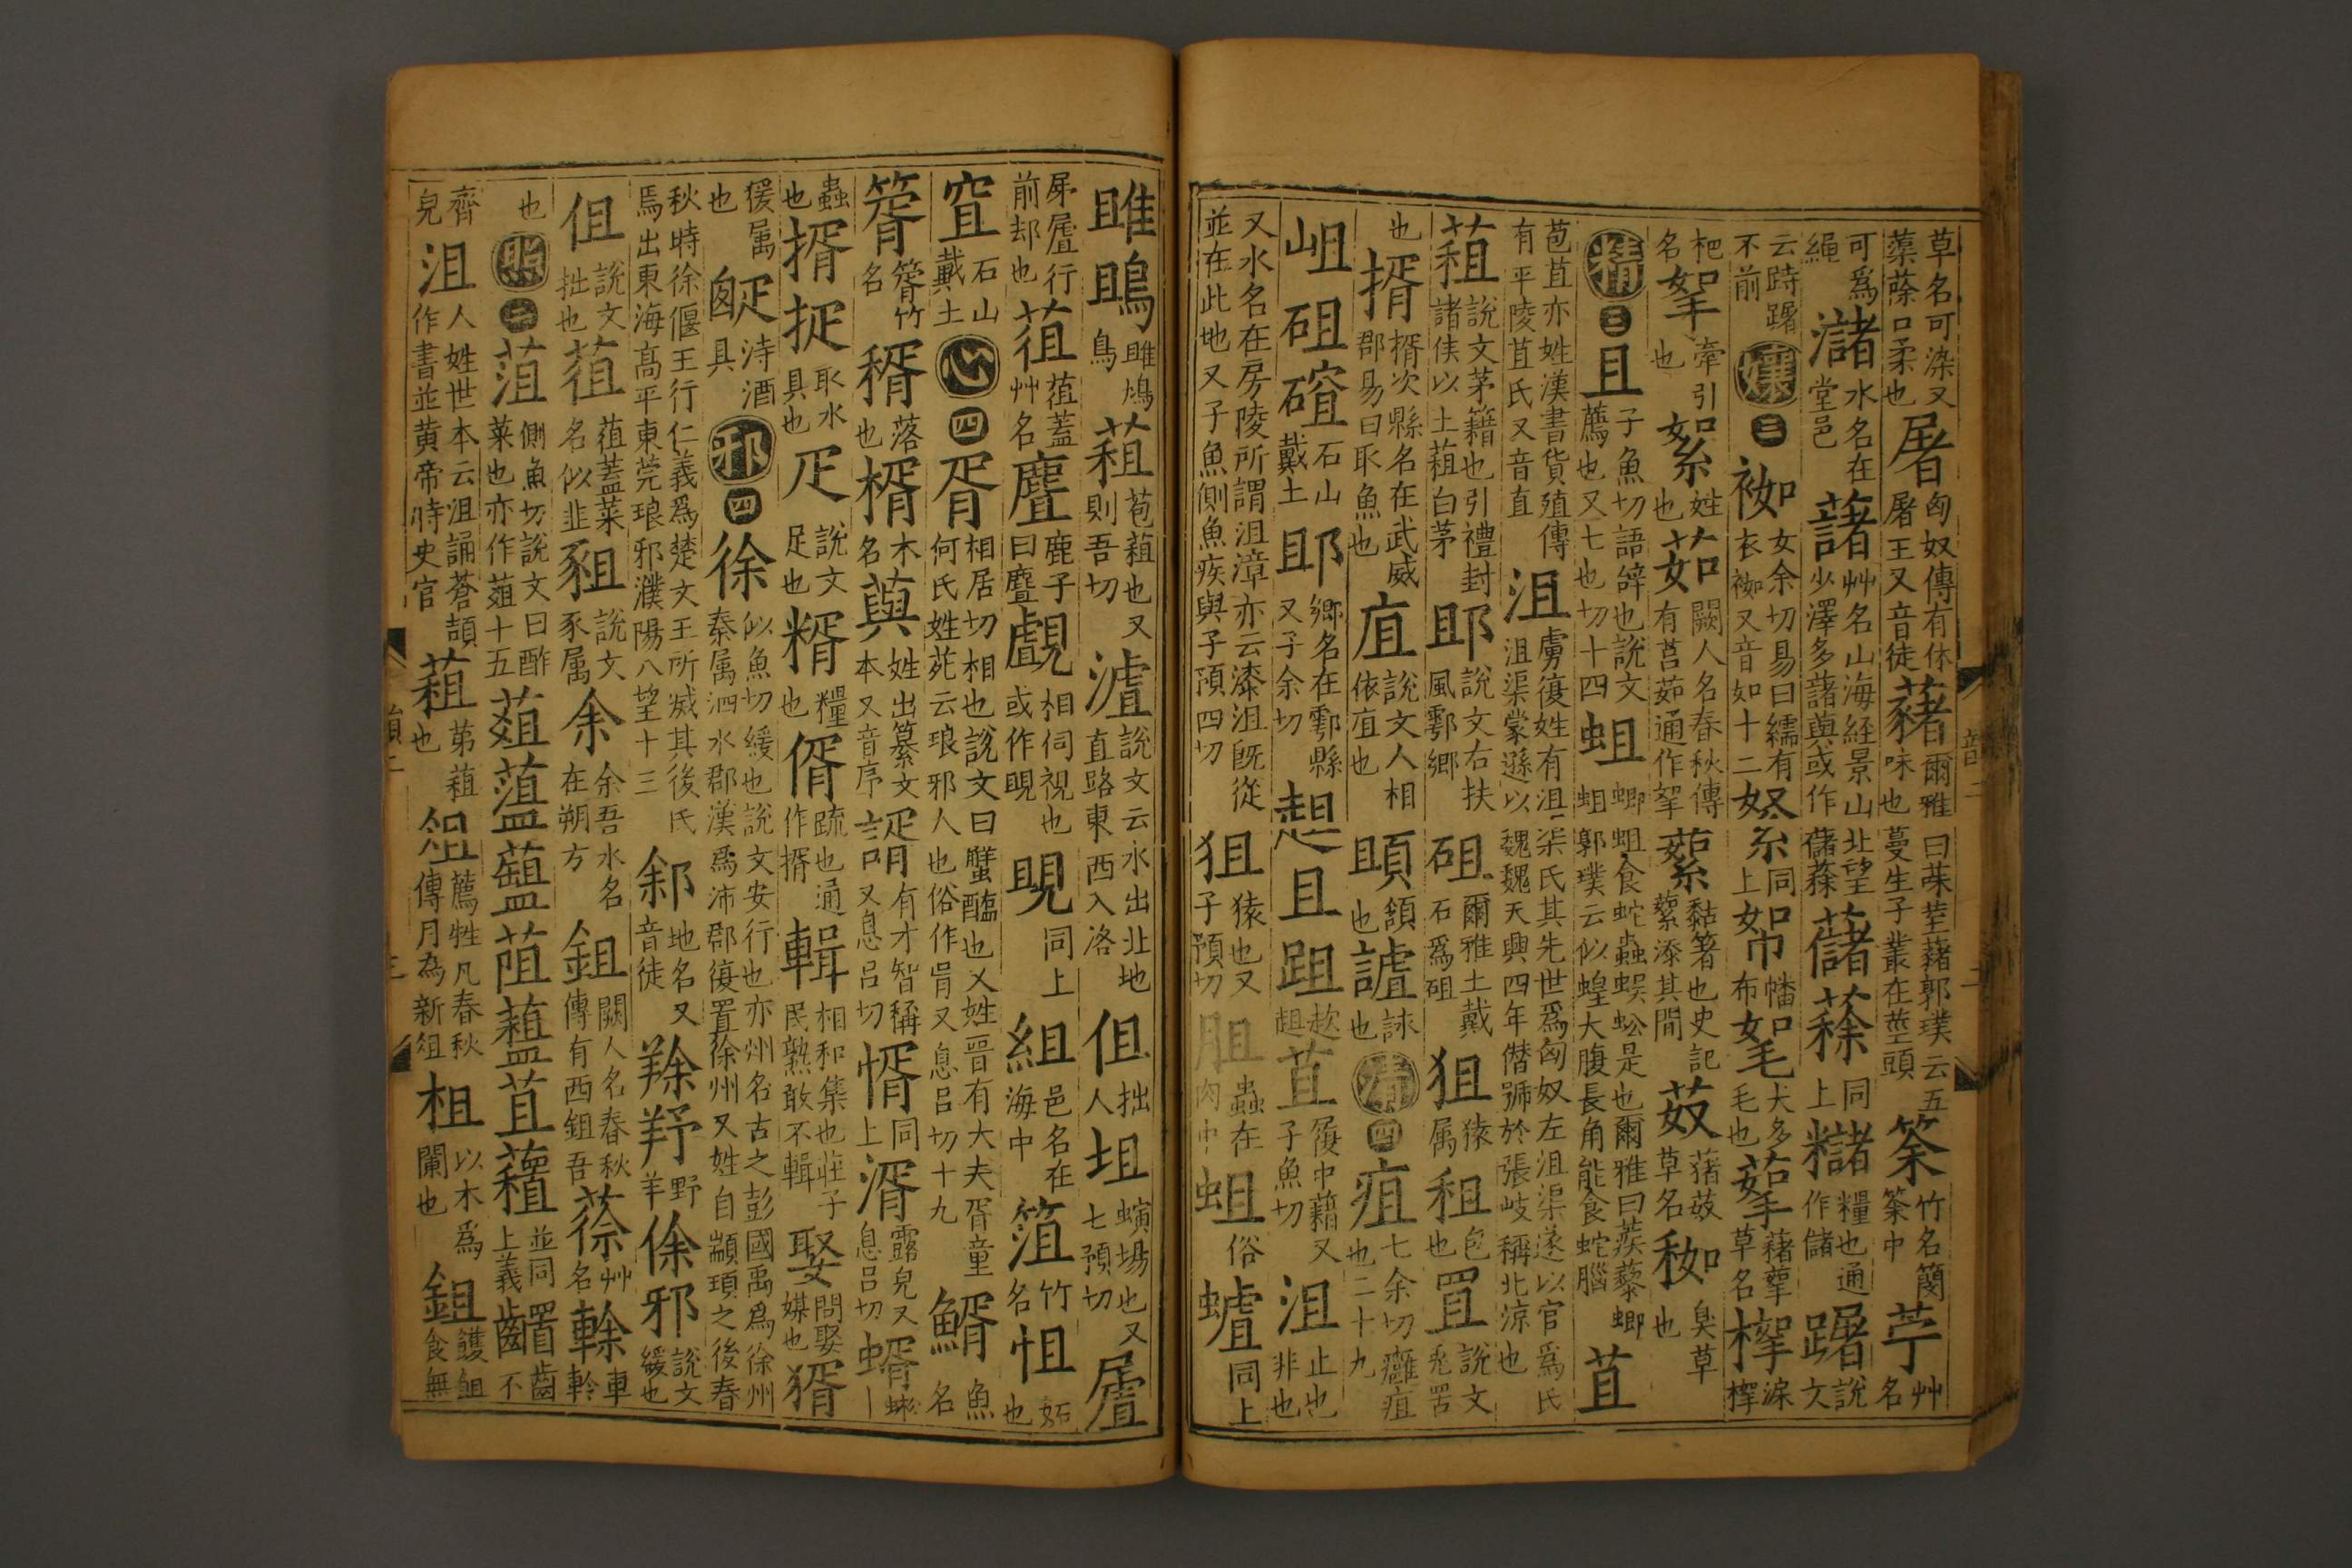 草名可染又蕖蒣口柔也屠匈奴傳有休屠王又音徒藸爾雅曰菋荎藸郭璞云五味也蔓生子叢在莖頭筡竹名簡筡中苧艸名
可爲繩瀦水名在堂邑藷艸名山海經景山北望少澤多藷藇或作儲蒣藸蒣同上𥼶糧也通作儲躇說文
云跱躇不前孃三袽女余切易曰繻有衣袽又音如十二㚼同上帤幡布㲎犬多毛也蒘藸蒘草名㮟㴃㮟
杷名挐牽引也絮姓也茹闕人名春秋傳有莒茹通作挐蕠黏著也史記蕠漆其間蒘藸蒘草名䋈臭草也
精三且子魚切語辝也說文薦也又七也切十四蛆蝍蛆蛆食蛇蟲蜈蚣是也爾雅曰蒺藜蝍郭璞云似蝗大腹長角能食蛇腦苴
苞苴亦姓漢書貨殖傳有平陵苴氏又音直沮虜復姓有沮渠氏其先世爲匈奴左沮渠遂以官爲氏沮渠蒙遜以魏魏天興四年僣號於張岐稱北涼也
蒩說文茅籍也引禮封諸侯以土蒩白茅䢸說文右扶風鄠鄉砠爾雅土戴石爲砠狙猿属租包也罝說文兎罟
也揟揟次縣名在武威郡易曰取魚也㡹說文人相依㡹也䪶頷也謯訹也清四疽七余切癰疽也二十九
岨砠䃊石山戴土䢸鄉名在鄠縣又子余切趄且跙趑趄苴履中藉又子魚切沮止也非也
又水名在房陵所謂沮漳亦云漆沮旣從並在此地又子魚側魚疾與子預四切狙猿也又子預切胆蟲在肉中蛆俗䗝同上
雎鴡雎鳩鳥蒩苞蒩也又則吾切瀘說文云水出北地直路東西入洛伹拙人坥螾場也又七預切㡿
㡿行前却也菹葅蓋艸名麆鹿子曰麆覰相伺視也或作覞覞同上組邑名在海中笡竹名怚妬也
䆛石山戴土心四胥相居切相也說文曰蟹醢也又姓晋有大夫胥童何氏姓苑云琅邪人也俗作𦙃又息吕切十九鰖魚名
箵箵竹名稰落也楈木名藇姓出纂文本又音序諝有才智稱又息吕切惰同上湑露皃又息吕切蝑蜙
蟲也揟㨖取水具也疋說文足也糈糧也偦疏也通作揟輯相和集也莊子民熟敢不輯娶問娶媒也猾
猨属也䣯涛酒具邪四徐似魚切緩也說文安行也亦州名古之彭國禹爲徐州秦属泗水郡漢爲沛郡復置徐州又姓自顓頊之後春
秋時徐偃王行仁義爲楚文王所滅其後氏焉出東海高平東莞琅邪濮陽八望十三䣄地名又音徒䍱羜野羊俆邪說文緩也
伹說文拙也葅葅蓋菜名似韭豠說文豕属余余吾水名在朔方鉏闕人名春秋傳有西鉏吾蒣艸名䡣車軨
也照二菹側魚切說文曰酢菜也亦作葅十五葅䕃蘁䔃蒩苴蘁並同上義齟齬齒不
齊皃沮人姓世本云沮誦蒼頡作書並黄帝時史官蒩茅蒩也俎薦牲凡春秋傳月為新俎柤以木爲闌也鉏鑊鉏食無